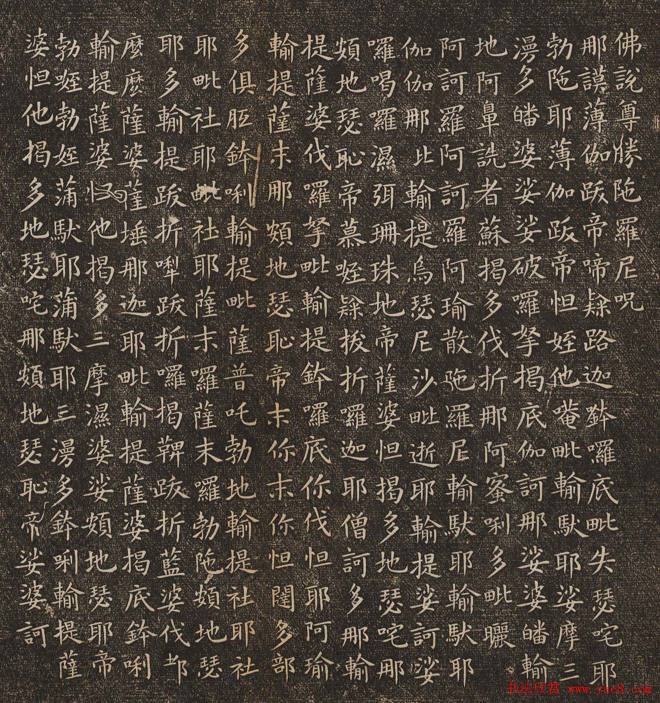 佛說尊勝陁羅尼呪
那謨薄伽跋帝啼隸路迦鉢囉底毗失瑟咤耶
勃陁耶薄伽跋帝怛姪他唵毗輸馱耶娑摩三
漫多皤婆娑娑破囉拏揭底伽訶那娑婆皤輸
地阿鼻詵者蘇揭多伐折那阿蜜唎多毗曬
阿訶羅阿訶羅阿瑜散陁羅尼輸馱耶輸馱耶
伽伽那比輸提烏瑟尼沙毗逝耶輸提娑訶娑
囉喝囉濕弭珊珠地帝薩婆怛揭多地瑟咤那
頞地瑟恥帝慕姪隸拔折囉迦耶僧訶多那輸
提薩婆伐羅拏毗輸提鉢囉底你伐怛耶阿瑜
輸提薩末那頞地瑟恥帝末你末你怛闥多部
多俱胝鉢唎輸提毗薩普吒勃地輸提社耶社
耶毗社耶毗社耶薩末羅薩末羅勃陁頞地瑟
耶多輸提跋折犁跋折囉揭鞞跋折藍婆伐都
麼麼薩婆薩埵那迦耶毗輸提薩婆揭底鉢唎
輸提薩婆怛他揭多三摩濕婆娑頞地瑟耶帝
勃姪勃姪蒲馱耶蒲馱耶三漫多鉢唎輸提薩
婆怛他揭多地瑟咤那頞地瑟恥帝娑婆訶